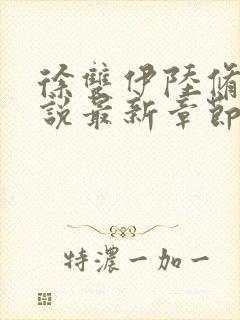 徐雙伊陸脩
說最新章節
特濃一加一